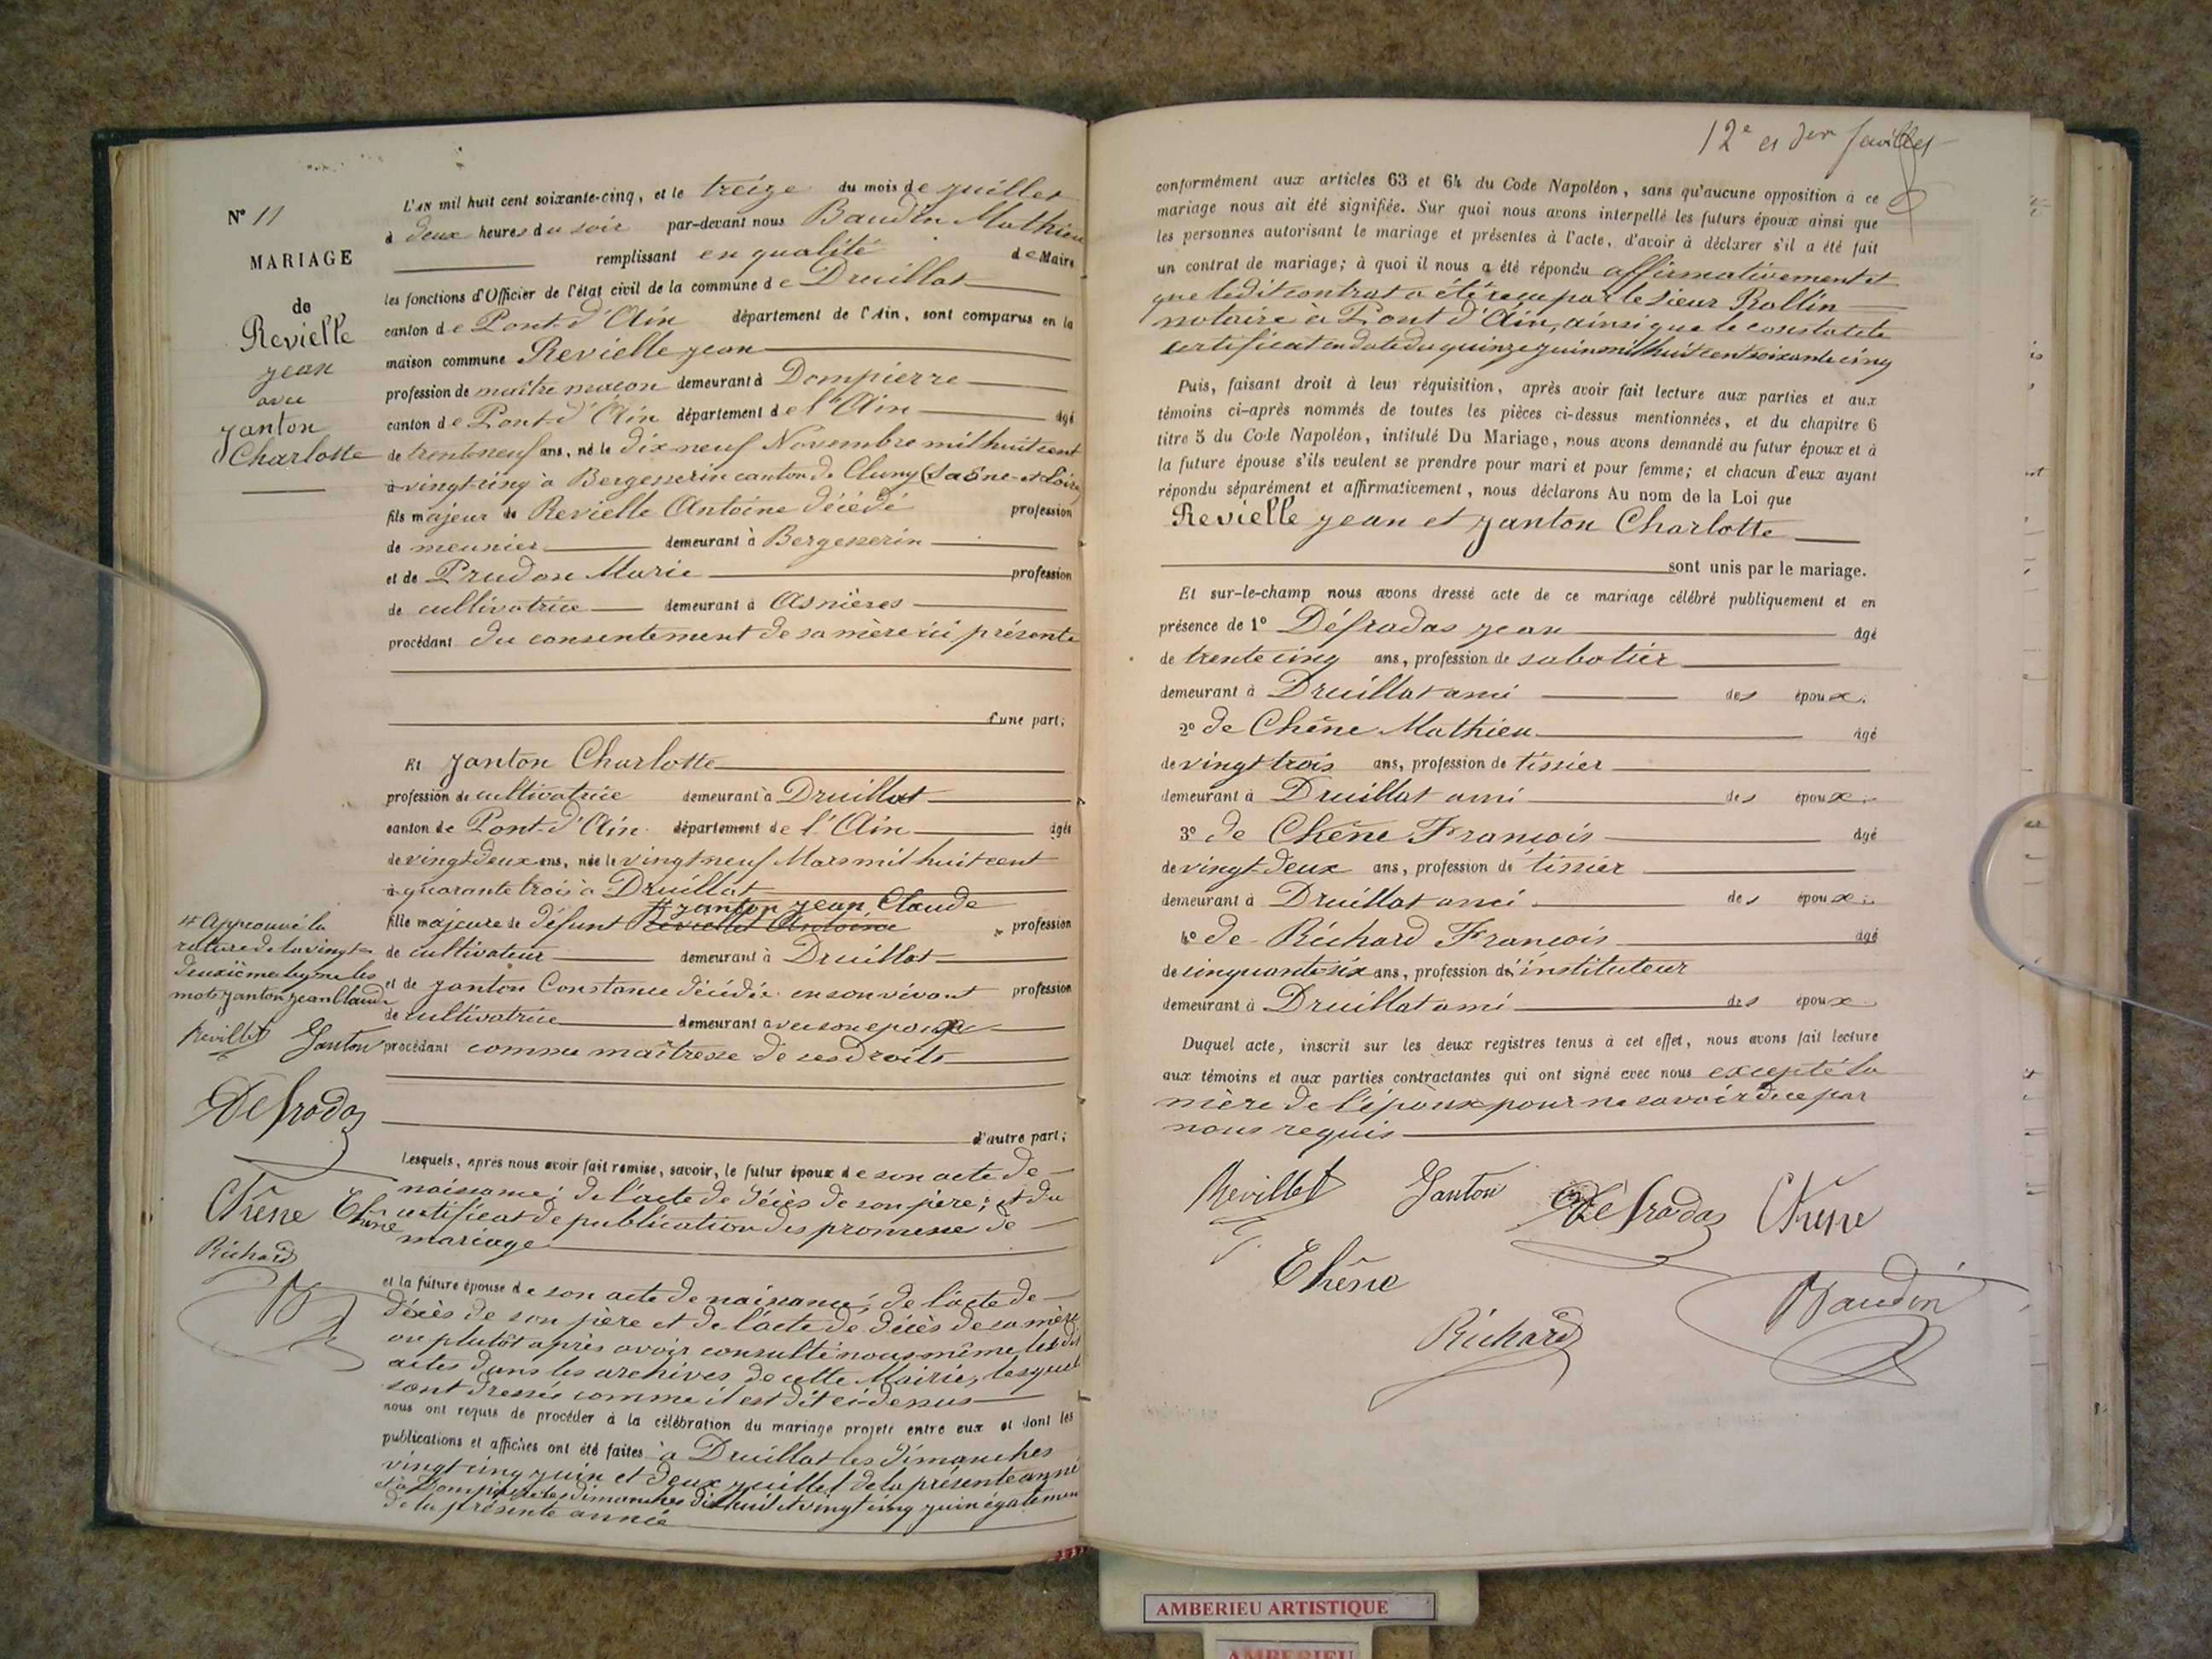 N° 11
MARIAGE
de
Revielle
jean
avec
janton
Charlotte
L'AN mil huit cent soixante-cinq, et le treize du mois de juillet
à deux heures du soir par-devant nous Baudin Mathieu
remplissant en qualité de Maire
les fonctions d'Officier de l'état civil de la commune de Druillat
canton de Pont-d'Ain département de l'Ain, sont comparus en la
maison commune Revielle jean
profession de maître maçon demeurant à Dompierre
canton de Pont-d'Ain département de l'Ain âgé
de trente neuf ans, né le dix neuf Novembre mil huit cent
à vingt-cinq à Bergesserin canton de Cluny (Saône-et-Loire)
fils majeur de Revielle Antoine décédé profession
de meunier demeurant à Bergesserin
et de Prudon Marie profession
de cultivatrice demeurant à Asnières
procédant du consentement de sa mère ici présente
d'une part;
Et janton Charlotte
profession de cultivatrice demeurant à Druillat
canton de Pont-d'Ain département de l'Ain âgée
de vingt deux ans, née le vingt neuf Mars mil huit cent
à quarante trois à Druillat
# janton jean Claude
fille majeure de défunt Revielllet Antoine profession
de cultivateur demeurant à Druillat
et de janton Constance décédée en son vivant profession
de cultivatrice demeurant avec son époux
procédant comme maîtresse de ses droits
d'autre part;
# Approuvé la
rature de la vingt-
deuxième ligne les
mots janton jean Claude
Revillet Janton
Defradas
Chêne Chêne
Richard
B
Lesquels, après nous avoir fait remise, savoir, le futur époux de son acte de
naissance; de l'acte de décès de son père; et du
certificat de publication des promesse de
mariage
et la future épouse de son acte de naissance; de l'acte de
décès de son père et de l'acte de décès de sa mère
ou plutôt après avoir consulté nous même les dits
actes dans les archives de cette Mairie, lesquel
sont dressés comme il est dit ci-dessus
nous ont requis de procéder à la célébration du mariage projeté entre eux et dont les
publications et affiches ont été faites à Druillat les dimanches
vingt cinq juin et deux juillet de la présente année
et à Dompierre les dimanches dix huit et vingt cinq juin également
de la présente année
12e et der feuillet
conformément aux articles 63 et 64 du Code Napoléon, sans qu'aucune opposition à ce
mariage nous ait été signifiée. Sur quoi nous avons interpellé les futurs époux ainsi que
les personnes autorisant le mariage et présentes à l'acte, d'avoir à déclarer s'il a été fait
un contrat de mariage; à quoi il nous a été répondu affirmativement et
que ledit contrat a été reçu par le sieur Rollin
notaire à Pont d'Ain, ainsi que le constate le
certificat en date du quinze juin mil huit cent soixante cinq
Puis, faisant droit à leur réquisition, après avoir fait lecture aux parties et aux
témoins ci-après nommés de toutes les pièces ci-dessus mentionnées, et du chapitre 6
titre 5 du Code Napoléon, intitulé Du Mariage, nous avons demandé au futur époux et à
la future épouse s'ils veulent se prendre pour mari et pour femme; et chacun d'eux ayant
répondu séparément et affirmativement, nous déclarons Au nom de la Loi que
Revielle jean et janton Charlotte
sont unis par le mariage.
Et sur-le-champ nous avons dressé acte de ce mariage célébré publiquement et en
présence de 1° Défradas jean âgé
de trente cinq ans, profession de sabotier
demeurant à Druillat ami des époux.
2° de Chêne Mathieu âgé
de vingt trois ans, profession de tissier
demeurant à Druillat ami des époux.
3° de Chêne François âgé
de vingt-deux ans, profession de tissier
demeurant à Druillat ami des époux.
4° de Richard François âgé
de cinquante six ans, profession d'instituteur
demeurant à Druillat ami des époux
Duquel acte, inscrit sur les deux registres tenus à cet effet, nous avons fait lecture
aux témoins et aux parties contractantes qui ont signé avec nous excepté la
mère de l'époux pour ne savoir de ce par
nous requis
Revillet Janton Défradas Chêne
Chêne
Richard Baudin
AMBERIEU ARTISTIQUE
AMBERIEU